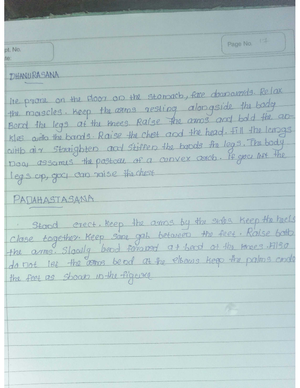 Page No.
DHANURASANA
lie prone on the floor on the stomach, face downwards. Relax
the muscles. keep the arms resting alongside the body
Bend the legs at the knees Raise the arms and hold the an-
kles with the hands. Raise the chest and the head. Fill the lungs
with air straighten and stiffen the hands the legs. The body
now assumes the posture of a convex arch. If you lift the
legs up, you can raise the chest
PADAHASTASANA
Stand erect. Keep the arms by the sides Keep the heels
close together. Keep some gap between the feet. Raise both
the arms. Slowly bend forward at the knees. Also
do not let the arms bend at the elbows keep the palms
the feet as shown in the figure